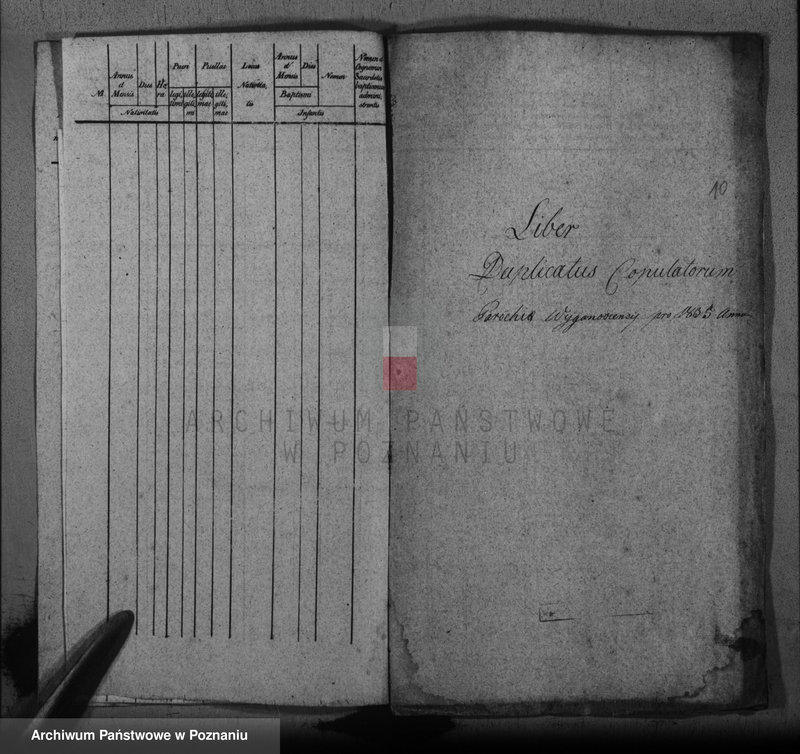 №
Annus et Mensis
Dies
Hora
Pueri
Puellae
Locus Nativitatis
Annus et Mensis
Dies
Nomen
Nomen et Cognomen Sacerdotis baptismum administrantis
legitimi
illegitimi
legitimae
illegitimae
Baptismi
Nativitatis
Infantis
10
Liber
Duplicatus Copulatorum
Parochiæ Wyganoviensis pro 1835 Anno
ARCHIWUM PAŃSTWOWE
W POZNANIU
Archiwum Państwowe w Poznaniu